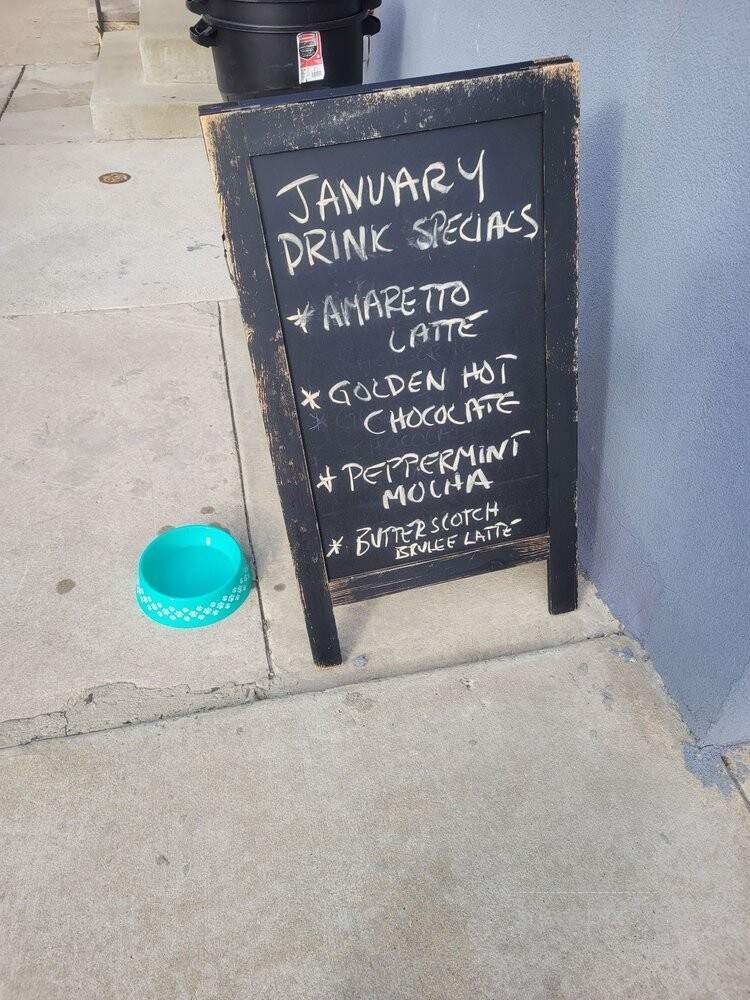 JANUARY
DRINK SPECIALS
* AMARETTO
LATTE
* GOLDEN HOT
CHOCOLATE
* PEPPERMINT
MOCHA
* BUTTERSCOTCH
BRULEE LATTE